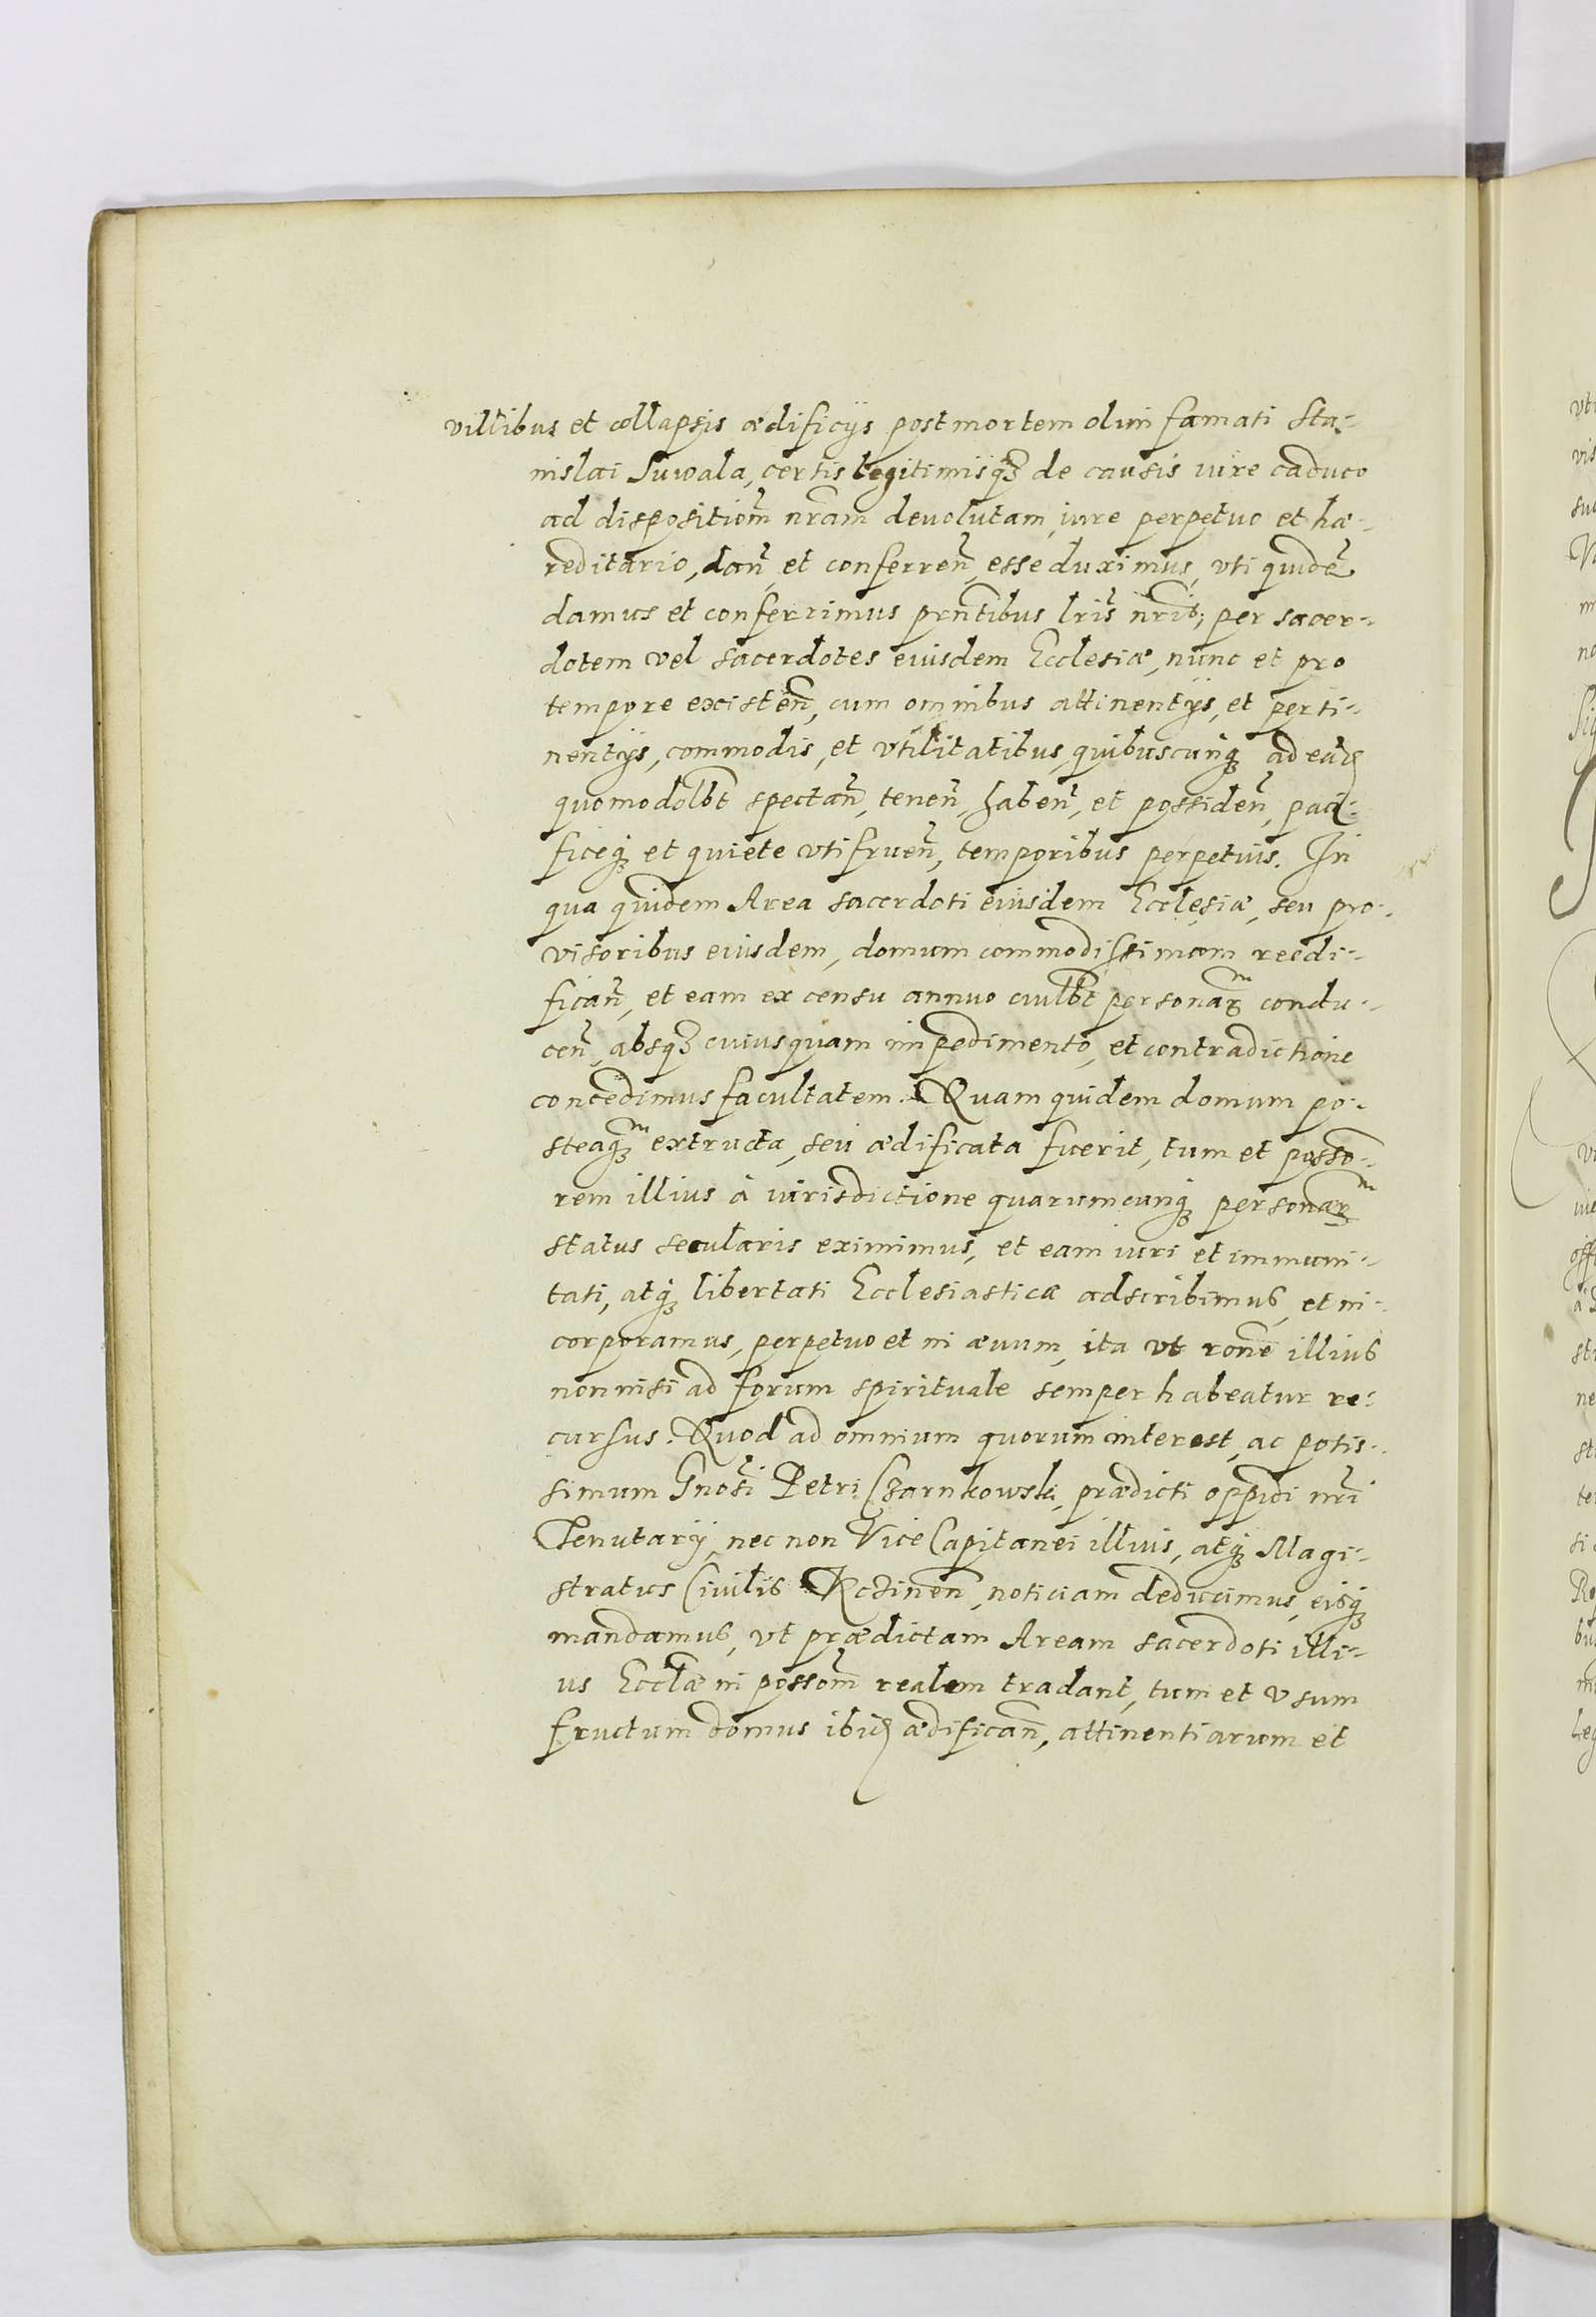 villibus et collapsis ædificijs post mortem olim famati Sta-
nislai Suwala, certis legitimisq́ꝫ de causis iure caduco
ad dispositiom̃ nr̃am deuolutam, iure perpetuo et hæ-
reditario, dañ, et conferreñ, esse duximus, vti quidẽ
damus et conferimus prñtibus lr̃is nr̃is; per sacer-
dotem vel sacerdotes eiusdem Ecclesiæ, nunc et pro
tempore existeñ, cum omnibus attinentijs, et perti-
nentijs, commodis, et vtilitatibus, quibuscunqꝫ ad eadẽ
quomodolbt̃ spectañ, teneñ, habeñ, et possideñ, paci-
ficeqꝫ et quiete vtifrueñ, temporibus perpetuis. In
qua quidem Area sacerdoti eiusdem Ecclesiæ, seu pro-
visoribus eiusdem, domum commodissimam reedi-
ficañ, et eam ex censu annuo cuilbt̃ personarᵐ condu-
ceñ, absqꝫ cuiusquam impedimento, et contradictione
concedimus facultatem. Quam quidem domum po-
steaqꝫᵐ extructa, seu ædificata fuerit, tum et posso-
rem illius à iurisdictione quarumcunqꝫ personarᵐ
status secularis eximimus, et eam iuri et immuni-
tati, atqꝫ libertati Ecclesiasticæ adscribimus, et in-
corporamus, perpetuo et in æuum, ita vt rone illius
nonnisi ad forum spirituale semper habeatur re-
cursus. Quod ad omnium quorum interest, ac potis-
simum Gnosi Petri Czarnkowski, prædicti oppidi nr̃i
Tenutarij, nec non Vice Capitanei illius, atqꝫ Magi-
stratus Ciuilis noticiam deducimus, eisqꝫ
mandamus, vt prædictam Aream sacerdoti illi-
us Ecclæ in possom̃ realem tradant, tum et vsum
fructum domus ibidẽ ædificañ, attinentiarum et